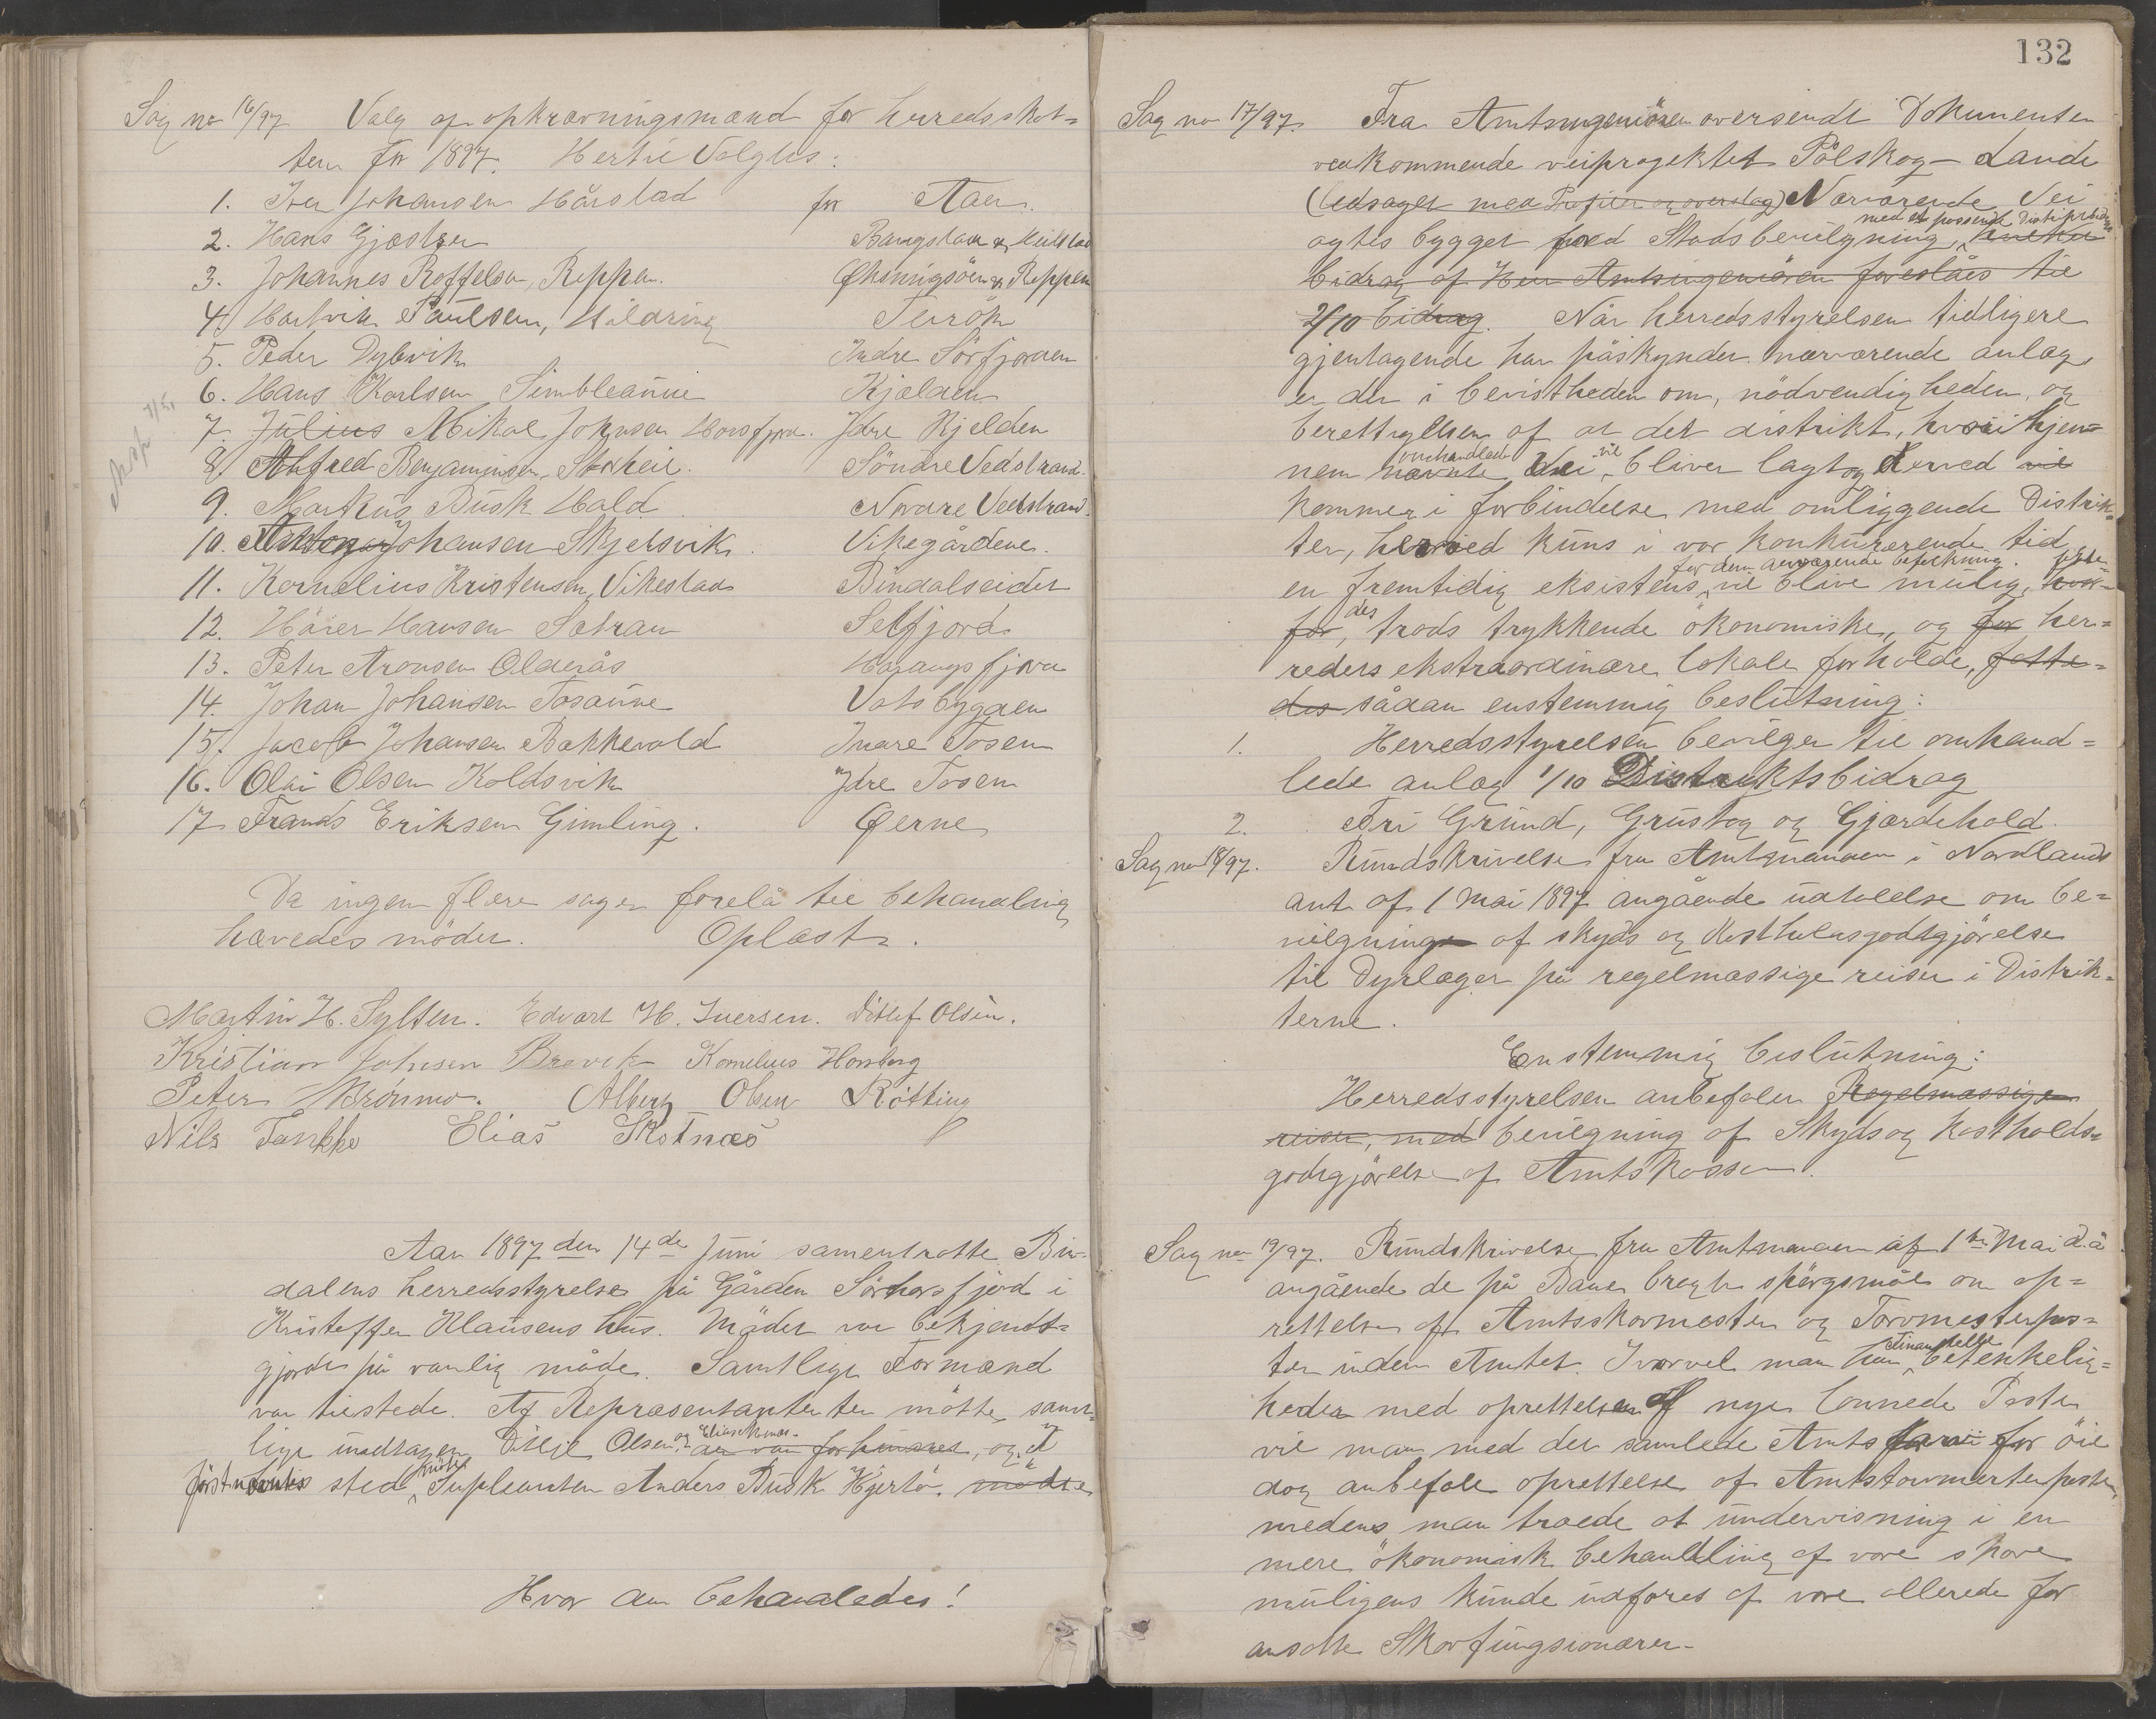 Sag no 16/97 Valg af opkrævningsmænd for herredsskat-
ten for 1897. Hertil Valgtes:
1. Iver Johansen Hårstad for Aaen.
2. Hans Gjæslzer Bangstad &
3. Johannes Roffelsen, Reppen. & Reppen
4. Hartvik Paulsen, Hildring Terråk
5. Peder Dybvik Indre Sörfjorden
6. Hans Karlsen Simbleaune Kjælden
7. Julius Mikal Johnsen Horsfjord. Ydre Kjelden
8. Alfred Benjaminsen, Söndre Vedstrand.
9. Markus Busk Hald Nordre Vedstrand.
10. Johansen Skjelsvik. Vikegårdene.
11. Kornelius Kristensen, Vikestad Bindalseidet
12. Hansen Sætran Selfjord
13. Peter Aronsen Olderås Harangsfjord
14. Johan Johansen Tosaune Vatsbygden
15. Jacob Johansen Bakkevold Indre Tosen
16. Olai Olsen Koldsvik Ydre Tosen
17 Frands Eriksen Gimling. Øerne
Da ingen flere sager forelå til behandling
hævedes mödet. Oplæst.
Martin H. Sylten. Edvart H. Iversen. Ditlef Olsen.
Kristian Johnsen Brevik Kornelius Horsberg
Peter Brönmo. Albert Olsen Rötting
Nils Elias Skotnæs
Aar 1897 den 14de Juni samentrotte Bin-
dalens herredsstyrelse på Gården Sörhorsfjord i
Kristoffer Klausens hus. Mödet var bekjendt-
gjordt på vanlig måde. Samtlige Formænd
var tilstede. Af Repræsentanter mötte samt-
og Elias Skotnæs.
lige undtagen Ditlef Olsen der var forhindret, og i
mötte
förstnævntes sted Supleanten Anders Busk Hjertö. mödte
Hvor da behandledes!
132
Sag no 17/97. Fra Amtsingeniören oversendt Dokumenter
vedkommende veiprojektet Pölskog - Lande
(ledsaget med Profiler og overslag) Nærværende Vei
med et passende Distr.bidrag
agtes bygget med Stadsbevilgning,
bidrag af Herr Amtsingeniören foreslåes til
2/10 bidrag. Når herredsstyrelsen tidligere
gjentagende har påskyndet nærværende anlæg,
er det i bevistheden om, nödvendigheden, og
berettigelsen af at det distrikt, hvori hjen-
omhandlede vil
nem nævnte Vei, bliver lagt og derved vil
kommer i forbindelse med omliggende Distrik-
ter, herved kuns i vor konkurerende tid
for dem nærværende befolkning.
en fremtidig eksistens, vil blive mulig,
for, trods trykkende ökonomiske, og for her-
reders ekstraordinære lokale forholde, fatte-
des sådan enstemmig beslutning:
1. Herredsstyrelsen bevilger til omhand-
lede anlæg 1/10 Distriktsbidrag
2. Fri Grund, Grustag og Gjærdehold.
Sag no 18/97. Rundskrivelse fra Amtmanden i Nordlands
amt af 1 Mai 1897 angående udtalelse om be-
vilgning af skyds og Kostholdsgodtgjörelse
til Dyrlæger på regelmæssige reiser i Distrik-
terne.
Enstemmig beslutning:
Herredsstyrelsen anbefaler Regelmæssige
reiser, med bevilgning af Skyds og Kostholds-
godtgjörelse af Amtskassen.
Sag no 19/97. Rundskrivelse fra Amtmanden af 1ste Mai d.å
angående de på Bane bragte spörgsmål om op-
rettelse af Amtsskovmester og Torvmesterpos-
Finansielle
ter inden Amtet. Hvorvel man har betenkelig-
heder med oprettelsen af nye lönnede Poster
vil man med det samlede Amts tarv for öie
dog anbefale oprettelse af Amtstorvmesterposten,
medens man troede at undervisning i en
mere ökonomisk behandling af vore skove
muligens kunde udföres af vore allerede for
ansatte Skovfungsionærer.